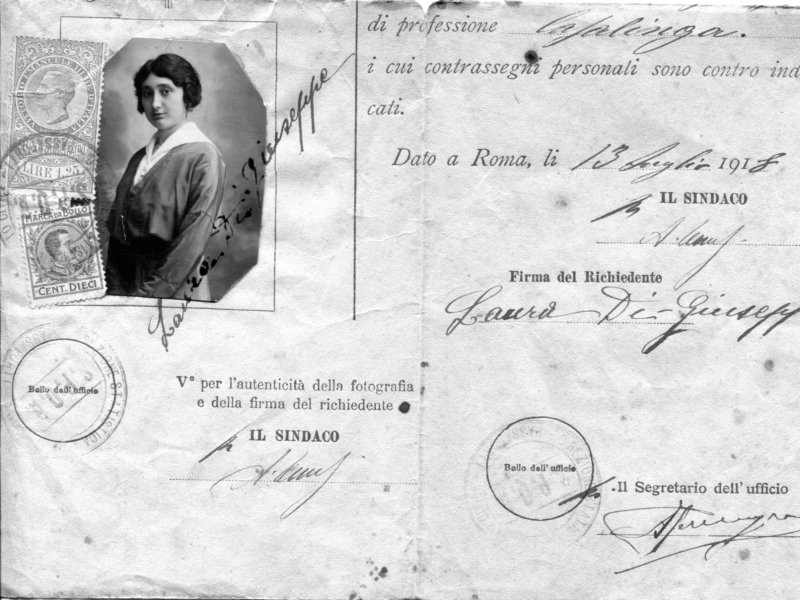 di professione Casalinga.
i cui contrassegni personali sono contro ind
cati.
Dato a Roma, li 13 Luglio 1918
IL SINDACO
Firma del Richiedente
Laura Di Giusepp
LIRE 1,25
MARCA DA BOLLO
CENT. DIECI
Laura Di Giuseppe
V° per l'autenticità della fotografia
e della firma del richiedente
IL SINDACO
Bollo dell'ufficio
Bollo dell'ufficio
Il Segretario dell'ufficio